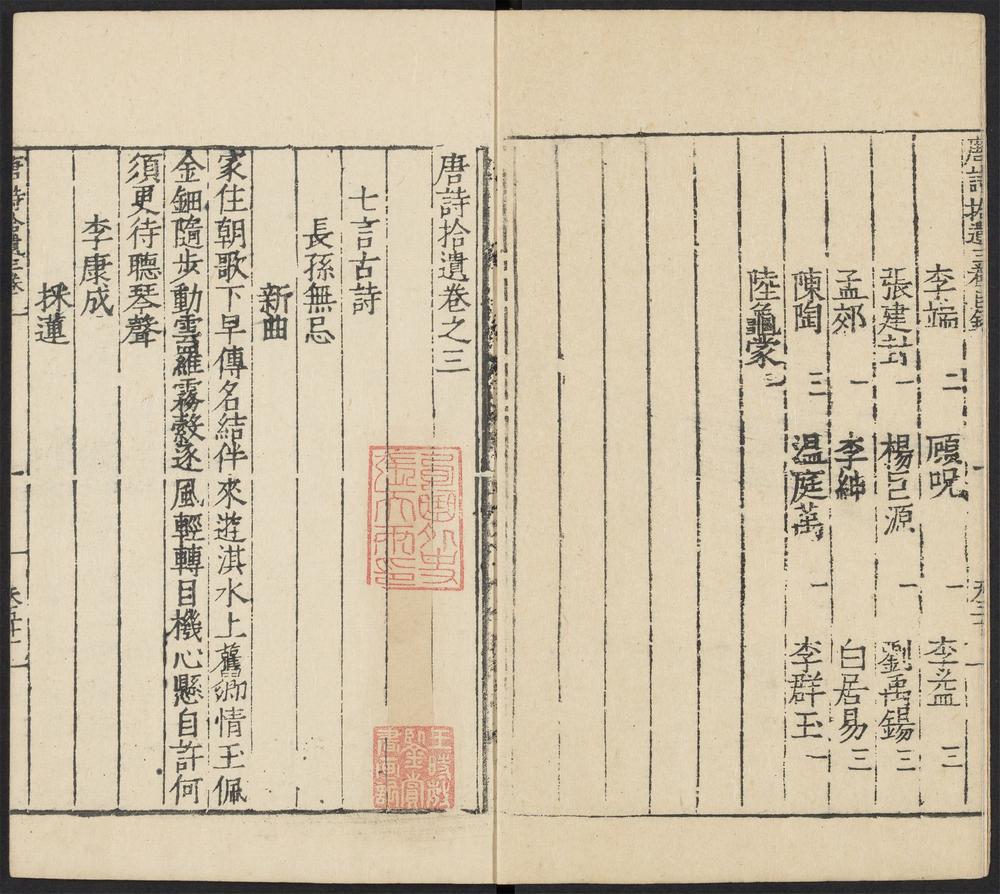 李端 二 顧況 一 李益 三
張建封 一 楊巨源 一 劉禹錫 三
孟郊 一 李紳 白居易 三
陳陶 三 温庭筠 一 李群玉 一
陸龜蒙
唐詩拾遺卷之三
七言古詩
長孫無忌
新曲
家住朝歌下早傳名結伴來遊淇水上舊鄉情玉佩
金鈿隨步動雲羅霧縠逐風輕轉目機心懸自許何
須更待聽琴聲
李康成
採蓮